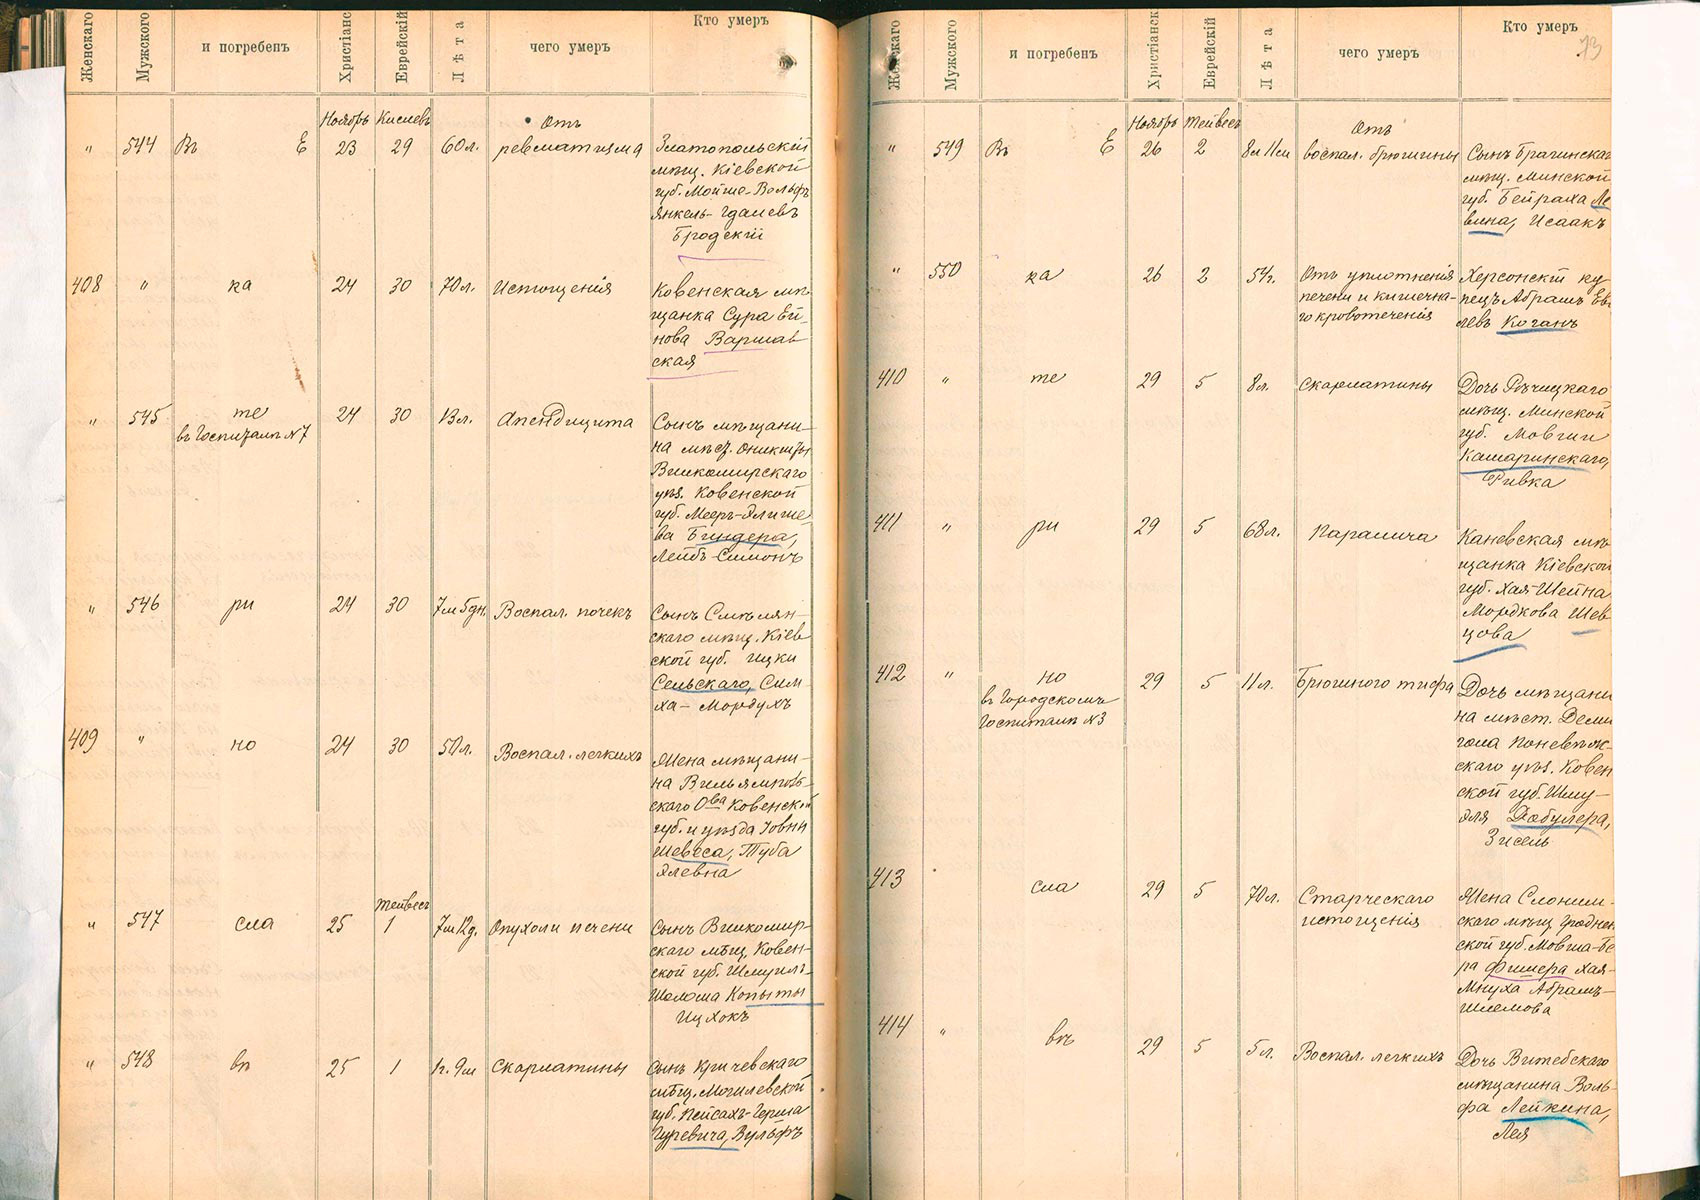 Женскаго
Мужского
и погребенъ
Христіанс
Еврейскій
Лѣта
чего умеръ
Кто умеръ
Ноябрь Кислевъ
" 544 Въ Е 23 29 60л. Отъ
ревматизма
Златопольскій
мѣщ. Кіевской
губ. Мойше-Вольфъ
Янкель-Гдалевъ
Бродскій
408 " ка 24 30 70л. Истощенія
Ковенская мѣ-
щанка Сура Ей-
нова Варшав
ская
" 545 те 24 30 13л. Апендицита
въ Госпиталѣ №7
Сынъ мѣщани-
на мѣст. Оникшты
Вилкомирскаго
уѣз. Ковенской
губ. Мееръ-Элише-
ва Биндера,
Лейбъ-Симонъ
" 546 ри 24 30 7м 5дн. Воспал. почекъ
Сынъ Смѣлян-
скаго мѣщ. Кіев
ской губ. Ицки
Сельскаго, Сим-
ха-Мордухъ
409 " но 24 30 50л. Воспал. легкихъ
Жена мѣщани-
на Вильямполь-
скаго Ова Ковенской
губ. и уѣзда Іовны
Шевеса, Туба
Элевна
Тейвесъ
" 547 сла 25 1 7м 12д. Опухоли печени
Сынъ Вилкомир-
скаго мѣщ. Ковен-
ской губ. Шмуилъ-
Шолома Копыты
Ицхокъ
" 548 въ 25 1 1г. 9м Скарлатины
Сынъ Кричевскаго
мѣщ. Могилевской
губ. Пейсахъ-Герша
Гуревича, Вульфъ
Женскаго
Мужского
и погребенъ
Христіанск
Еврейскій
Лѣта
чего умеръ
Кто умеръ
73
Ноябрь Тейвесъ
" 549 Въ Е 26 2 8л 11м Отъ
воспал. брюшины
Сынъ Брагинскаг
мѣщ. Минской
губ. Бейраха Ле
вина, Исаакъ
" 550 ка 26 2 54г. Отъ уплотненія
печени и кишечна-
го кровотеченія
Херсонскій ку
пецъ Абрамъ Ев
левъ Коганъ
410 " те 29 5 8л. Скарлатины
Дочь Рѣчицкаго
мѣщ. Минской
губ. Мовши
Кашаринскаго,
Ривка
411 " ри 29 5 68л. Паралича
Каневская мѣ
щанка Кіевской
губ. Хая-Шейна
Мордкова Шев
цова
412 " но 29 5 11л. Брюшного тифа
въ Городскомъ
Госпиталѣ №3
Дочь мѣщани
на мѣст.
Поневѣж-
скаго уѣз. Ковен
ской губ. Шму-
эля Дабулера,
Зисель
413 сла 29 5 70л. Старческаго
истощенія
Жена Слоним-
скаго мѣщ Гроднен
ской губ. Мовша-Бе
ра Фишера Хая-
Мнуха Абрамъ-
Шлемова
414 " въ 29 5 5л. Воспал. легкихъ
Дочь Витебскаго
мѣщанина Воль-
фа Лейкина,
Лея